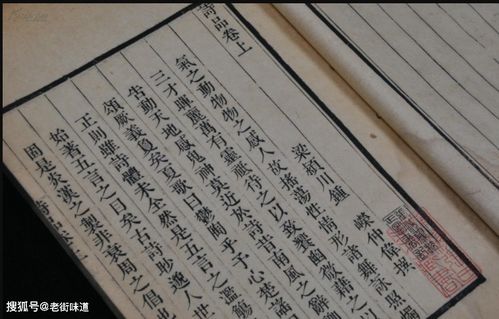 詩品卷上
梁穎川鍾 嶸仲偉撰
氣之動物物之感人故搖蕩性情形諸舞詠照燭
三才暉麗萬有靈祇待之以致饗幽微藉之以
告動天地感鬼神莫近於詩昔南風之辭
頌厥義敻矣夏歌曰鬱陶乎予心楚謠
正則雖詩體未全然是五言之濫觴
始著五言之目矣古詩眇邈人世
固是炎漢之製非衰周之倡也
搜狐号@老街味道